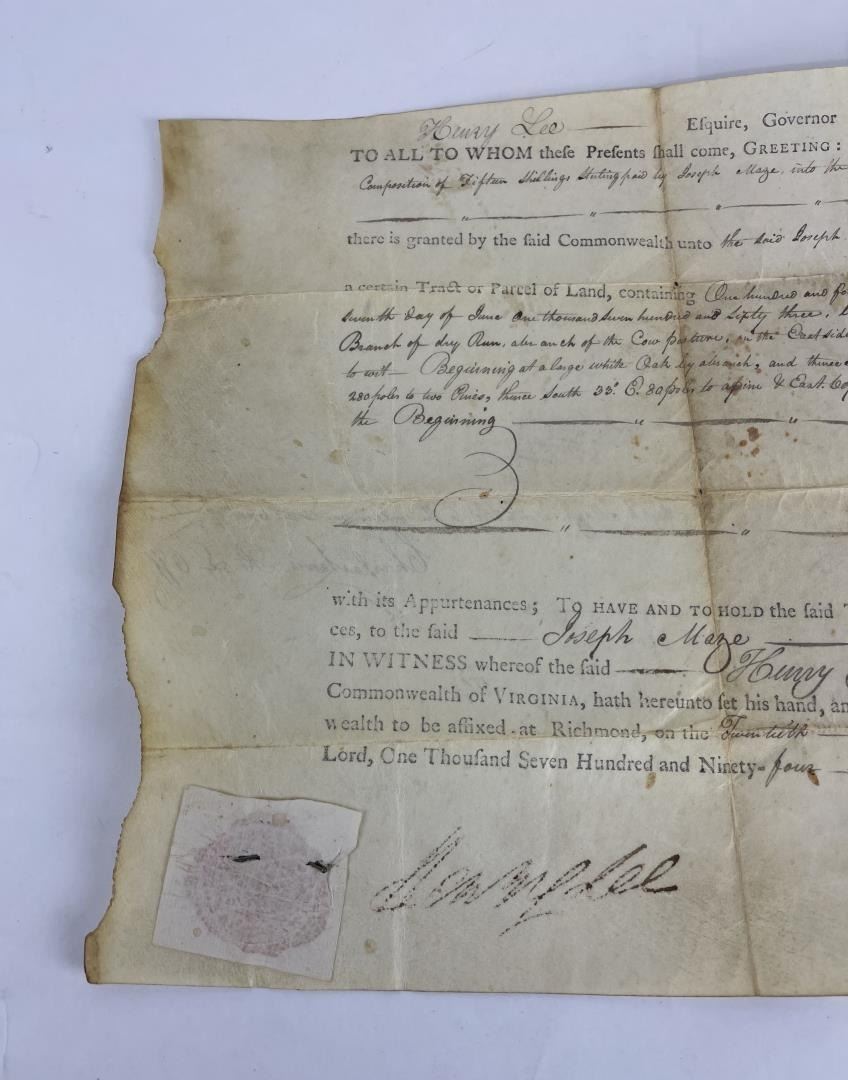 Henry Lee Eſquire, Governor
TO ALL TO WHOM theſe Preſents ſhall come, GREETING:
Composition of Fifteen Shillings Sterling paid by Joseph Maze, into the
there is granted by the ſaid Commonwealth unto the said Joseph
a certain Tract or Parcel of Land, containing One hundred and
seventh day of June one thousand seven hundred and sixty three,
Branch of dry Run, a branch of the Cow pasture, on the East side
to wit — Beginning at a large white Oak by a branch, and thence
280 poles to two Pines, thence South 33° E. 80 poles to a pine & East.
the Beginning
with its Appurtenances; TO HAVE AND TO HOLD the ſaid
ces, to the ſaid Joseph Maze
IN WITNESS whereof the ſaid Henry
Commonwealth of VIRGINIA, hath hereunto ſet his hand, an
wealth to be affixed at Richmond, on the Twentieth
Lord, One Thouſand Seven Hundred and Ninety-four
Henry Lee